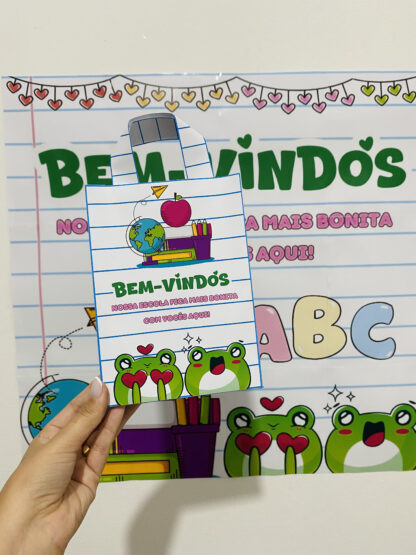 BEM-VINDOS
NO A MAIS BONITA
S AQUI!
ABC
BEM-VINDOS
NOSSA ESCOLA FICA MAIS BONITA
COM VOCÊS AQUI!